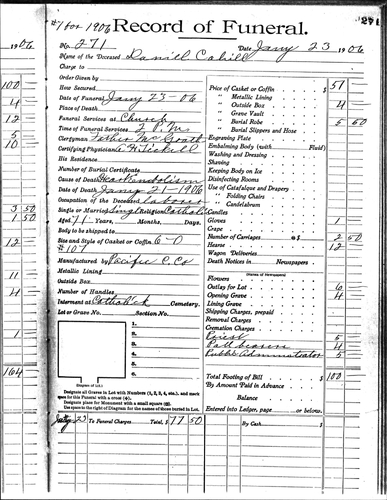 #1 for 1906
Record of Funeral.
271
1906
No. 271
Date Jany 23 1906
Name of the Deceased Daniel Cahill
Charge to
Order Given by
How Secured
Date of Funeral Jany 23-06
Place of Death
Funeral Services at Church
Time of Funeral Services 2 P.M.
Clergyman Father McGrath
Certifying Physician A H Tickell
His Residence
Number of Burial Certificate
Cause of Death Heart Embolism
Date of Death Jany 21-1906
Occupation of the Deceased laborer
Single or Married Single Religion Catholic
Aged 71 Years, Months, Days
Body to be shipped to
Size and Style of Casket or Coffin 6-0
#107
Manufactured by Pacific C. Co
Metallic Lining
Outside Box
Number of Handles
Interment at Catholick Cemetery,
Lot or Grave No. Section No.
1.
2.
3.
4.
5.
6.
7.
(Diagram of Lot.)
Designate all Graves in Lot with Numbers (1, 2, 3, 4, etc.), and mark
space for this Funeral with a cross (+).
Designate place for Monument with a small square
Use space to the right of Diagram for the names of those buried in Lot.
23 To Funeral Charges Total, $ 77 50
Price of Casket or Coffin $ 51
" Metallic Lining
" Outside Box 4
" Grave Vault
" Burial Robe 5 50
" Burial Slippers and Hose
Engraving Plate
Embalming Body (with Fluid)
Washing and Dressing
Shaving
Keeping Body on Ice
Disinfecting Rooms
Use of Catafalque and Drapery
" Folding Chairs
" Candelabrum
Candles
Gloves 1
Crape
Number of Carriages @ $ 2 50
Hearse 12
Wagon Deliveries
Death Notices in Newspapers
(Names of Newspapers)
Flowers
Outlay for Lot 6
Opening Grave 4
Lining Grave
Shipping Charges, prepaid
Removal Charges
Cremation Charges
Priest 5
Pall bearers 4
Public Administrator 5
Total Footing of Bill $ 100
By Amount Paid in Advance
Balance
Entered into Ledger, page or below.
By Cash $
100
4
12
5
10
3 50
1 50
12
11
4
1
164